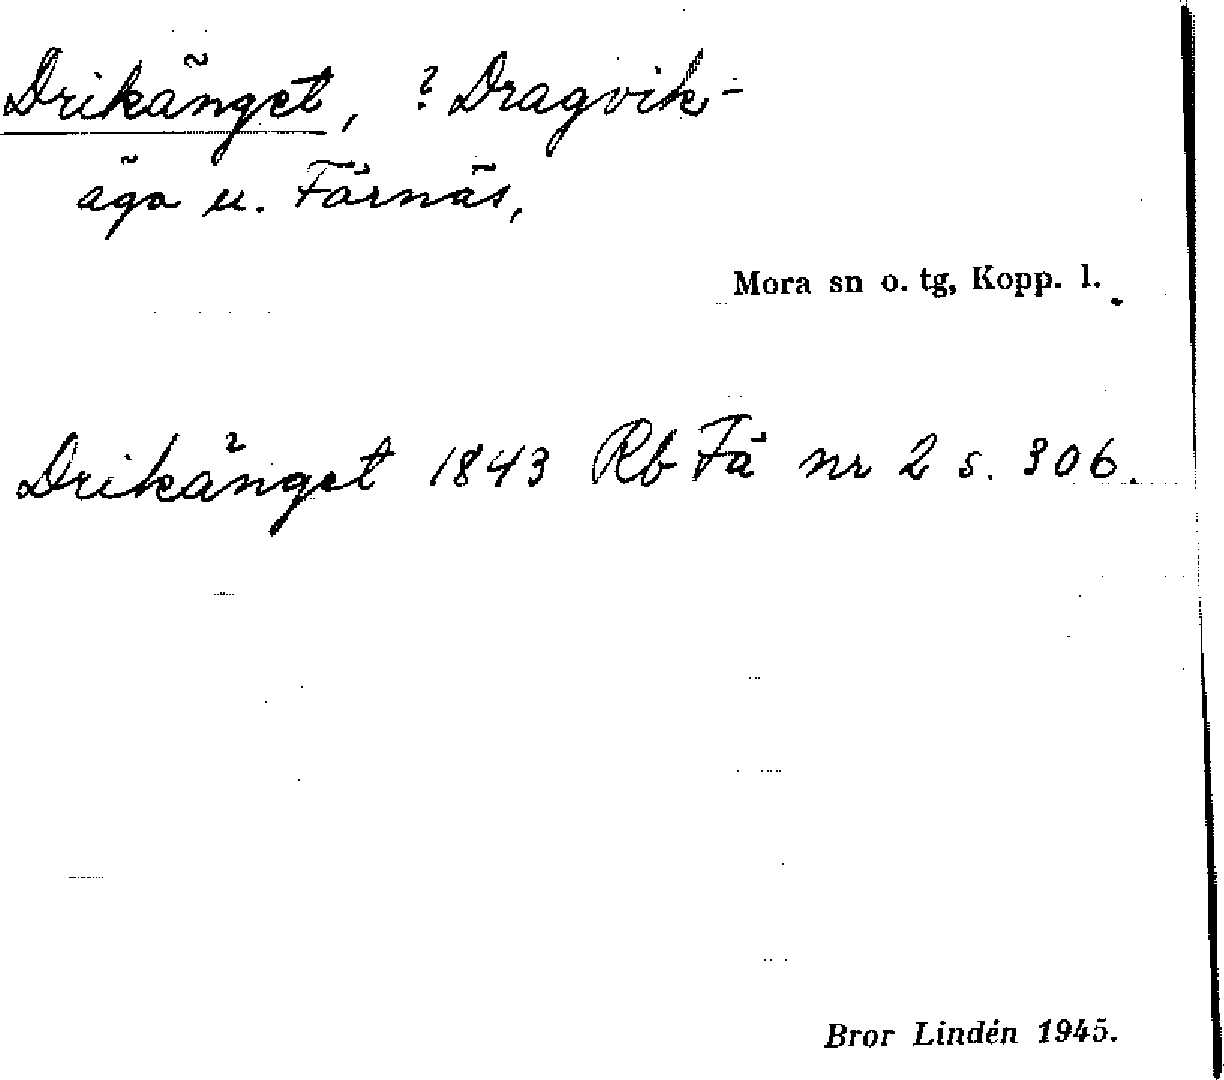 Drikänget, ? Dragvik-
äga u. Färnäs,
Mora sn o. tg, Kopp. l.
Drikänget 1843 Rb Fä nr 2 s. 306.
Bror Lindén 1945.